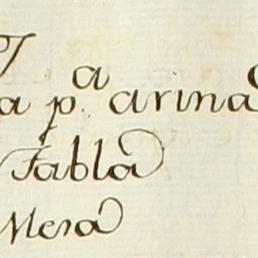 a p.ª arina
Tabla
Mesa